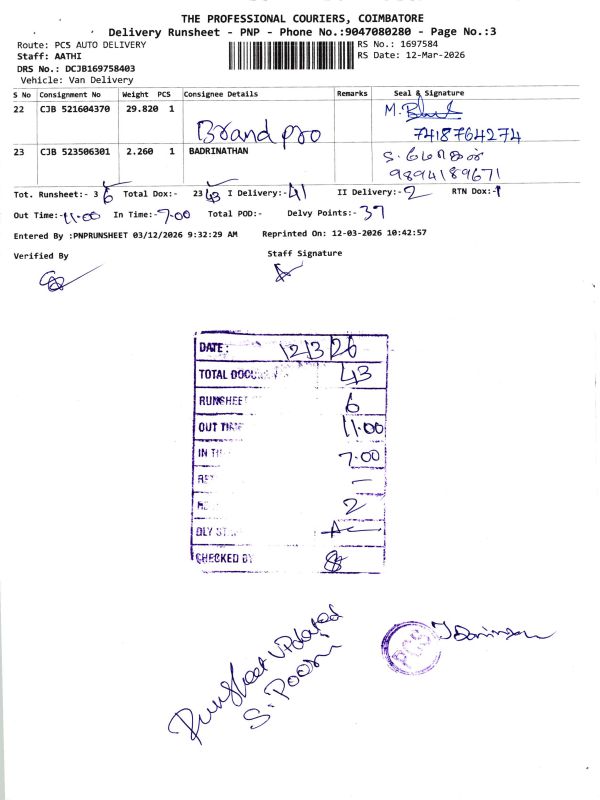 THE PROFESSIONAL COURIERS, COIMBATORE
Delivery Runsheet - PNP - Phone No.:9047080280 - Page No.:3
Route: PCS AUTO DELIVERY
RS No.: 1697584
Staff: AATHI
RS Date: 12-Mar-2026
DRS No.: DCJB169758403
Vehicle: Van Delivery
S No Consignment No Weight PCS Consignee Details Remarks Seal & Signature
22 CJB 521604370 29.820 1 Brand pro M.
7418764274
23 CJB 523506301 2.260 1 BADRINATHAN
9894189671
Tot. Runsheet:- 3 6 Total Dox:- 23 43 I Delivery:- 41 II Delivery:- 2 RTN Dox:-
Out Time:- 11.00 In Time:- 7.00 Total POD:- Delvy Points:- 37
Entered By :PNPRUNSHEET 03/12/2026 9:32:29 AM Reprinted On: 12-03-2026 10:42:57
Verified By Staff Signature
DATE: 12/3/26
TOTAL 43
RUNSHEET 6
OUT TIME 11.00
IN 7.00
—
2
DLY
CHECKED BY
Runsheet Updated
S. Poorni
PCS